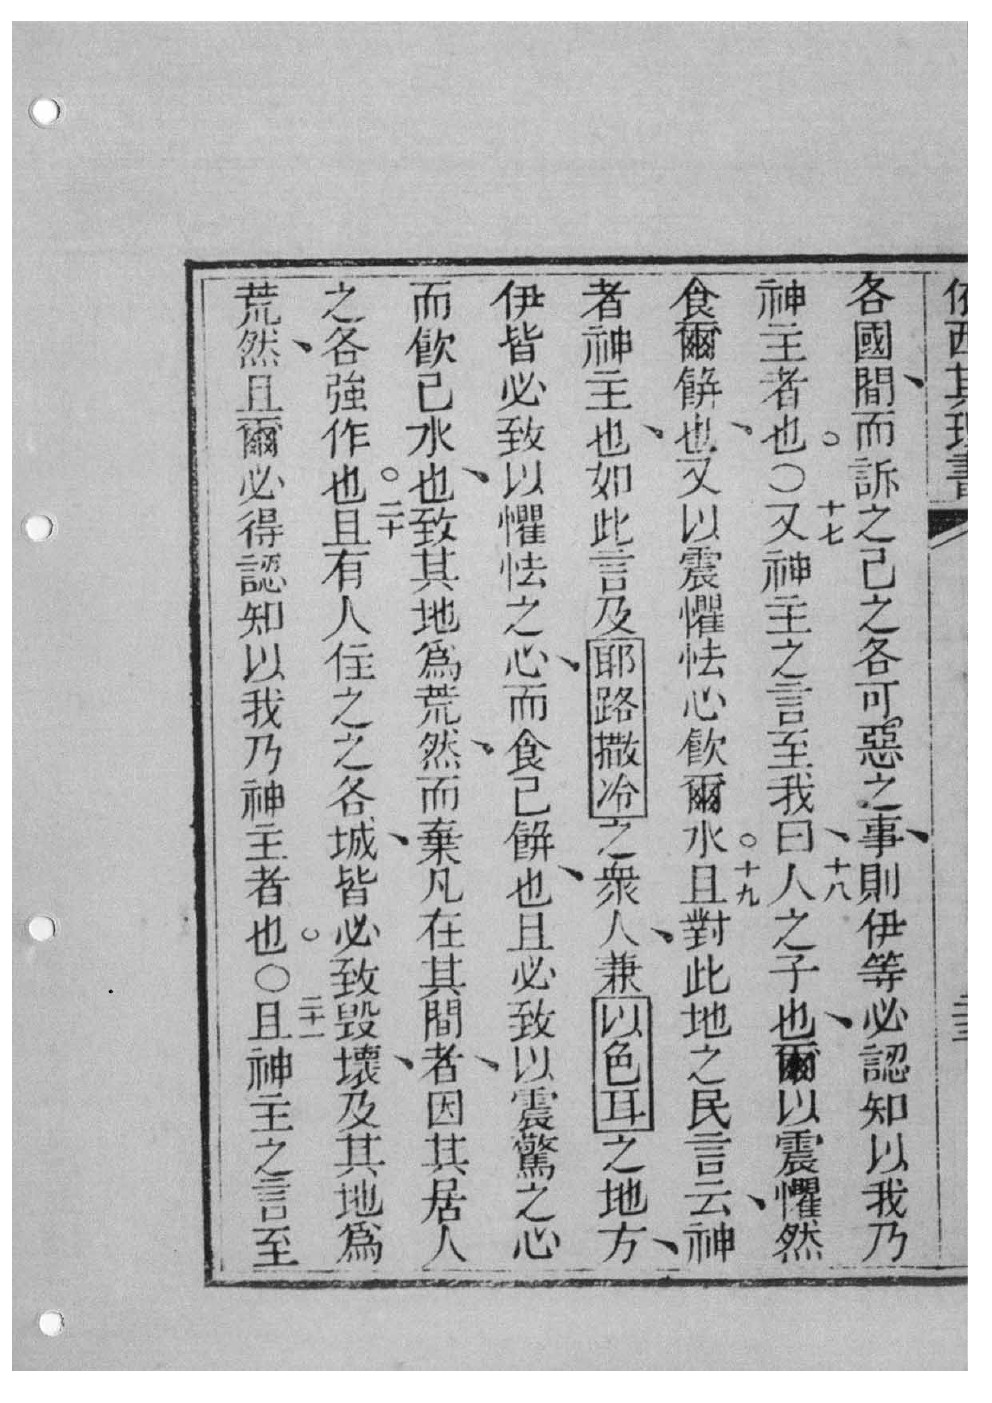 依西其理書 二三
各國間、而訴之己之各可惡之事、則伊等必認知以我乃
神主者也。○十七又神主之言至我曰、十八人之子也、爾以震懼然
食爾餅也、又以震懼怯心飲爾水。十九且對此地之民言云、神
者神主也、如此言及耶路撒冷之衆人、兼以色耳之地方、
伊皆必致以懼怯之心、而食己餅也、且必致以震驚之心
而飲己水、也致其地爲荒然、而棄凡在其間者、因其居人
之各強作也。二十且有人住之之各城、皆必致毀壞、及其地爲
荒然、且爾必得認知以我乃神主者也。○二十一且神主之言至